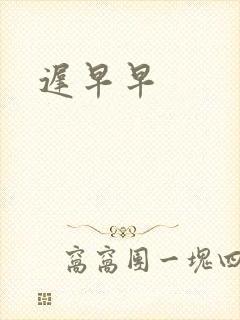 遲早早
窩窩團一塊四